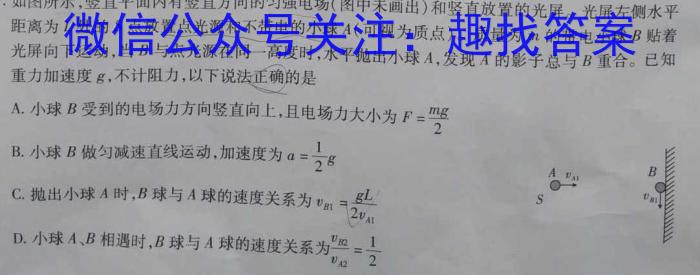 如图所示,竖直平面内有竖直方向的匀强电场(图中未画出)和竖直放置的光屏,光屏左侧水平
距离为
微信公众号关注:趣找答案
贴着
光屏向下运动,当 与点光源在同一高度时,水平抛出小球A,发现A的影子总与B重合。已知
重力加速度g,不计阻力,以下说法正确的是
A. 小球B受到的电场力方向竖直向上,且电场力大小为 F = mg/2
B. 小球B做匀减速直线运动,加速度为 a = 1/2 g
C. 抛出小球A时,B球与A球的速度关系为 v_B1 = gL/2v_A1
D. 小球A、B相遇时,B球与A球的速度关系为 v_B2/v_A2 = 1/2
A v_A1 B
S v_B1